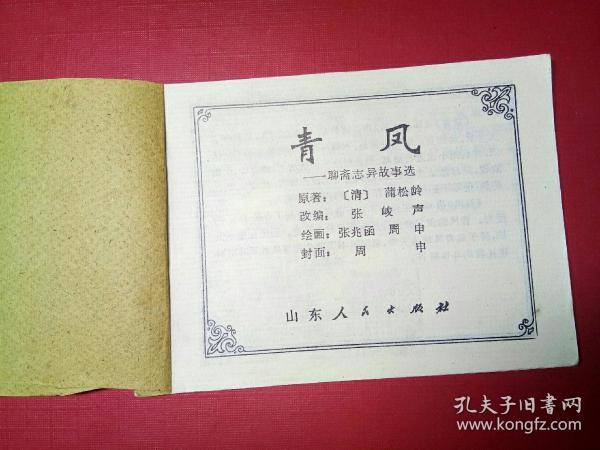 青 凤
——聊斋志异故事选
原著：〔清〕 蒲松龄
改编：张 峻 声
绘画：张兆函 周 申
封面：周 申
山东人民出版社
孔夫子旧书网
www.kongfz.com